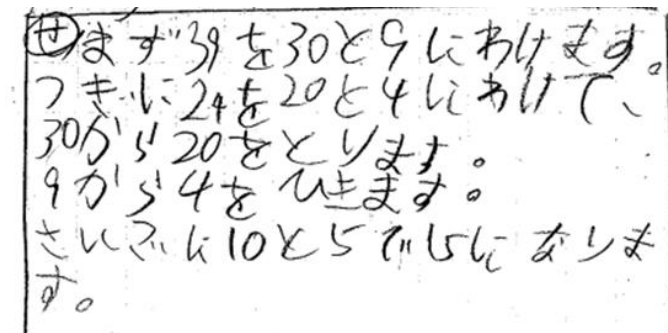 ㋝まず39を30と9にわけます。
つぎに24を20と4にわけて、
30から20をとります。
9から4をひきます。
さいごに10と5で15になりま
す。